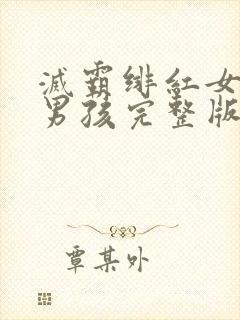 滅霸绯紅女
男孩完整版
覃某外